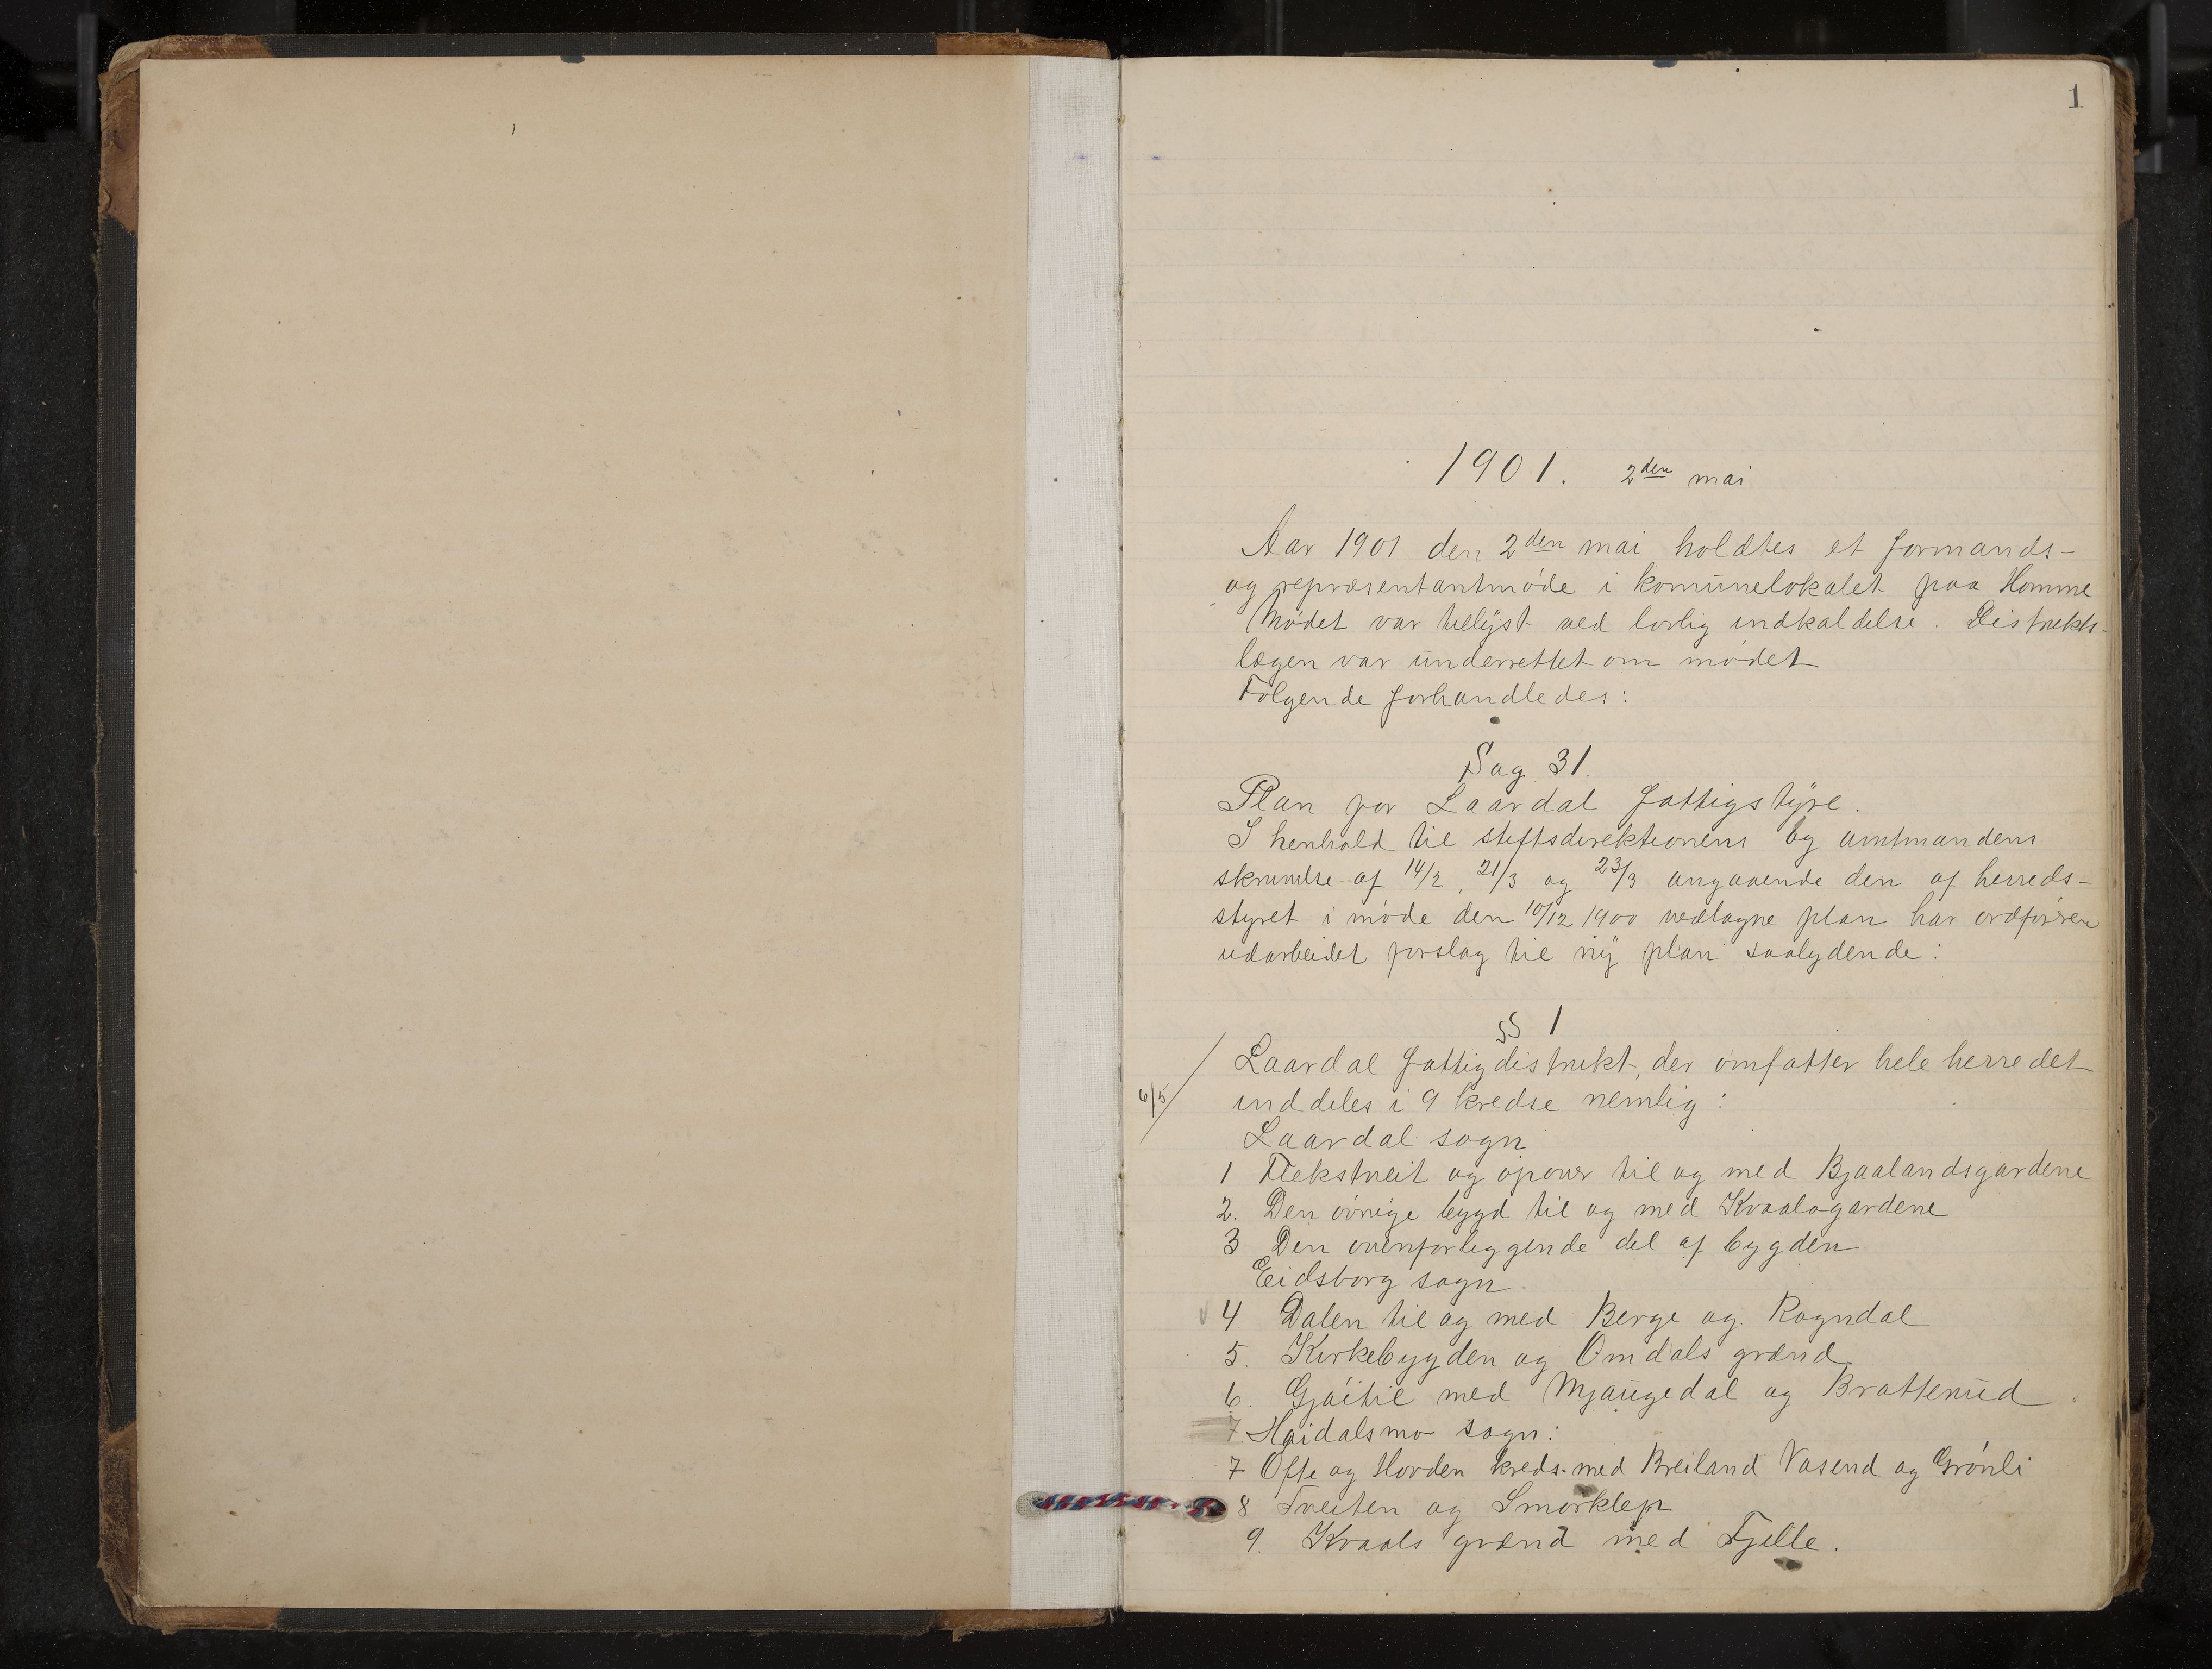 1
1901. 2den mai
Aar 1901 den 2den mai holdtes et formands-
og repræsentantmøde i komunelokalet paa Homme
Mødet var tillyst ved lovlig indkaldelse. Distrikts-
lægen var underrettet om mødet
Følgende forhandledes:
Sag 31.
Plan for Laardal fattigstyre.
I henhold til stiftsdirektionens og amtmandens
skrivelse af 14/2, 21/3 og 23/3 angaaende den af herreds-
styret i møde den 10/12 1900 vedtagne plan har ordføreren
udarbeidet forslag til ny plan saalydende:
§ 1
Laardal fattigdistrikt, der omfatter hele herredet
6/5
inddeles i 9 kredse nemlig:
Laardal sogn
1 Flekstveit og opover til og med Bjaalandsgardene
2. Den øvrige bygd til og med Kvaalogardene
3 Den ovenforliggende del af bygden
Eidsborg sogn
4 Dalen til og med Berge og Rogndal
5. Kirkebygden og Omdals grænd
6. Gjøitil med Mjaugedal og Brattenud
7 Høidalsmo sogn:
7 Ofte og Hovden kreds med Breiland Vasend og Grønli
8 Tveiten og Smørklep
9. Kvaals grænd med Fjelle.